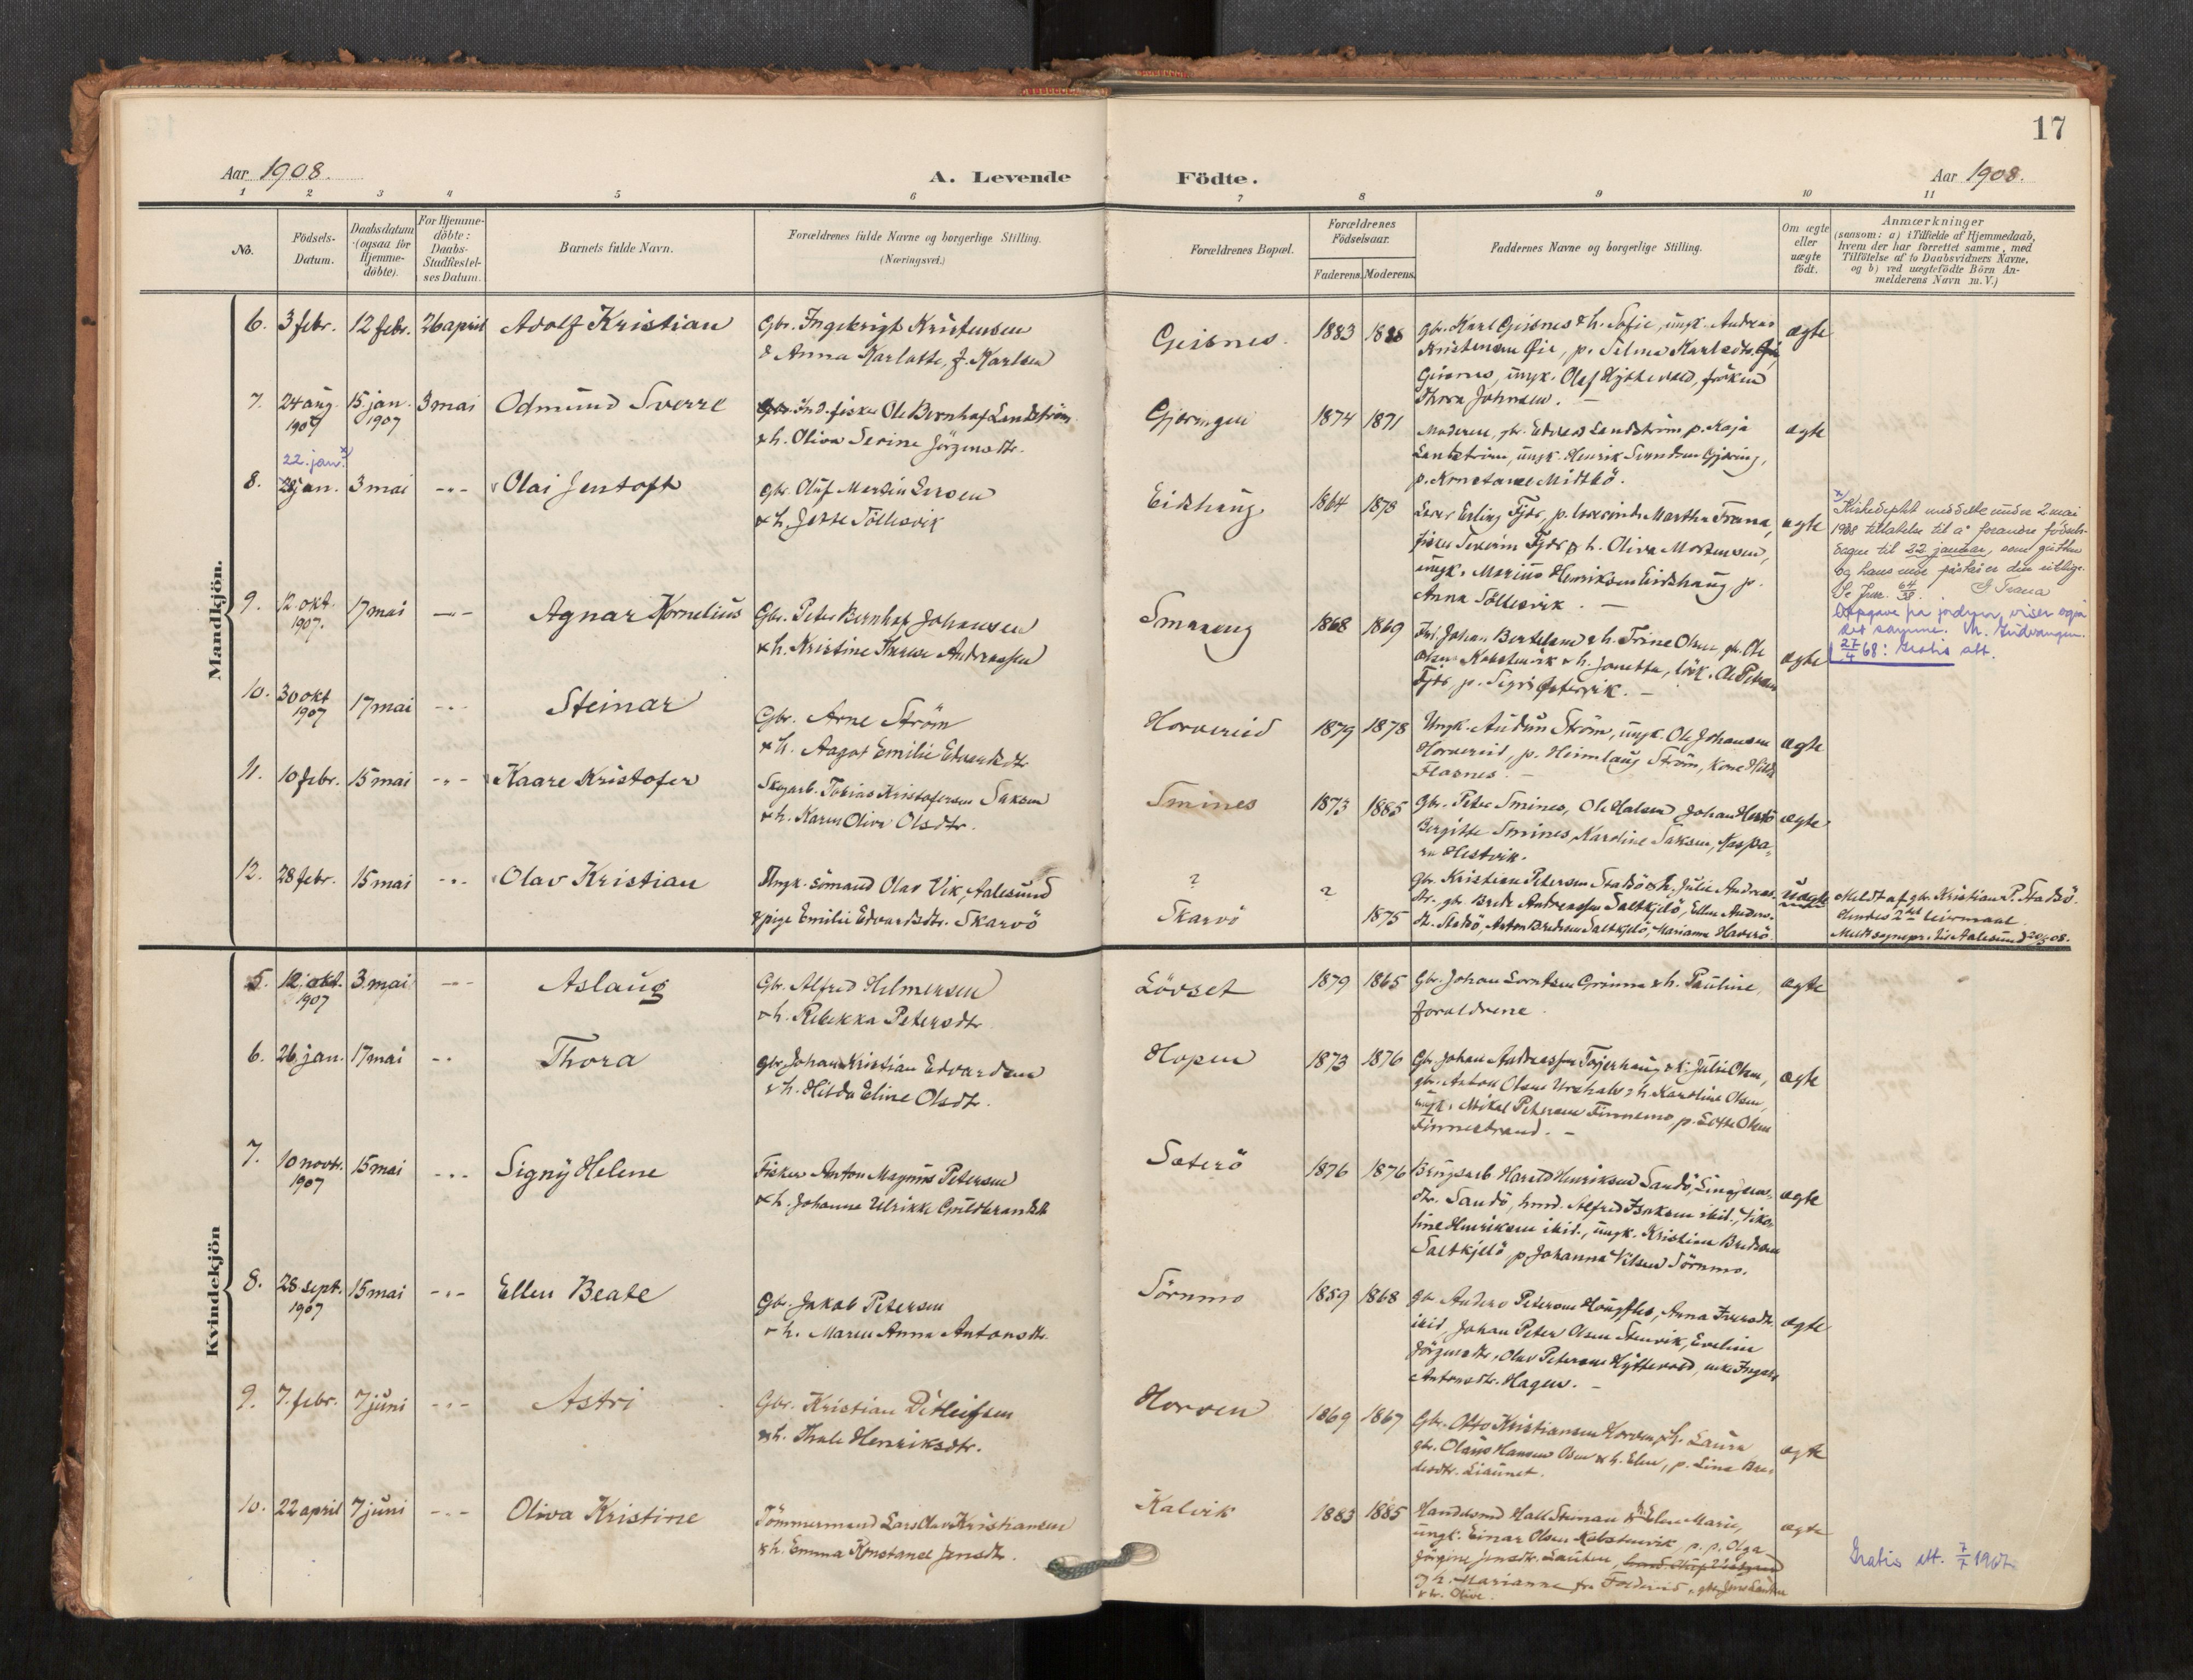 17
Aar 1908.
A. Levende Födte.
Aar 1908.
1 2 3 4 5 6 7 8 9 10 11
No.
Födsels-
Datum.
Daabsdatum
(ogsaa for
Hjemme-
döbte).
For Hjemme-
döbte:
Daabs-
Stadfæstel-
ses Datum.
Barnets fulde Navn.
Forældrenes fulde Navne og borgerlige Stilling.
(Næringsvei.)
Forældrenes Bopæl.
Forældrenes
Födselsaar.
Faderens. Moderens.
Faddernes Navne og borgerlige Stilling.
Om ægte
eller
uægte
födt.
Anmærkninger
(saasom: a) i Tilfælde af Hjemmedaab,
hvem der har forrettet samme, med
Tilföielse af to Daabsvidners Navne,
og b) ved uægtefödte Börn An-
melderens Navn m.V.)
Mandkjön.
6. 3 febr. 12 febr. 26 april Adolf Kristian
Gbr. Ingebrigt Kristensen
& Anna Karlotte, f. Karlsen
Geisnes. 1883 1888
gbr. Karl Geisnes & h. Sofie, ungk. Andreas
Kristensen Öie, p. Selma Karlsdtr.
Geisnes, ungk. Olaf Hyttevold, fröken
Thora Johnsen. —
ægte
7. 24 aug. 1907 15 jan. 1907 3 mai Odmund Sverre
Ind. fisker Ole Bernhof Landström
& h. Oliva Serine Jörgensdtr.
Gjæringen 1874 1871
Moderen, gbr. Edvard Landström p. Kaja
Landström, ungk. Henrik Gjæring,
p. Konstanse Midtbö.
ægte
8. 22. jan. x) 28 jan. 3 mai -"- Olai Jentoft
gbr. Oluf Martin Larsen
& h. Jesse Söllesvik
Eidshaug 1864 1878
Lærer Erling Fjær, p. Martha Frana,
fisker Severin Fjær & h. Oliva Mortensen,
ungk. Marius Henriksen Eidshaug p.
Anna Söllesvik. —
ægte
x) Kirkedeptet meddelte under 2. mai
1938 tillatelse til å forandre födsels-
dagen til 22 januar, som gutten
og hans mor påstår er den riktige.
Se Jnr. 64/38.
Oppgave fra jordmor viser også
det samme.
27/4 68: Gratis att.
9. 12. okt. 1907. 17 mai -"- Agnar Kornelius
Gbr. Peter Bernhof Johansen
& h. Kristine Therese Andreassen
Smaaeng 1868 1869
Johan Bertelsen & h. Trine Olsen, gbr. Ole
Olsen Kobstenvik & h. Jonetta, Ole Petersen
Fjær, p. Sigrid Östervik. —
ægte
10. 30 okt 1907 17 mai -"- Steinar
Gbr. Arne Ström
& h. Aagot Emilie Edvardsdtr
Horvereid 1879 1878
Ungk. Audun Ström, ungk. Ole Johansen
Horvereid, p. Heimlaug Ström, kone Hilda
Flasnes. —
ægte
11. 10 febr. 15 mai -"- Kaare Kristofer
Skogarb. Tobias Kristofersen Saksen
& h. Karen Oliva Olsdtr.
Smines 1873 1885
Gbr. Peter Smines, Ole Halsen, Johan
Bergitte Smines, Karoline Saksen, Kaspa-
ra Hestvik.
ægte
12. 28 febr. 15 mai -"- Olav Kristian
Ungk. sömand Olav Vik, Aalesund
& pige Emilie Edvardsdtr. Skarvö
?
Skarvö
? 1875
Gbr. Kristian Petersen Stadsö & h. Julie Andreas-
dtr. gbr. Brede Andreassen Saltkjelö, Ellen Anders-
dtr. Stadsö, Anton Bredesen Saltkjelö, Marianne Haverö
Uægte
Meldt af gbr. Kristian P. Stadsö.
Hendes 2det leiermaal.
Meldt sognepr. til Aalesund 20/5 08.
Kvindekjön
5. 12. okt. 1907 3. mai -"- Aslaug
Gbr. Alfred Hilmersen
& h. Rebekka Petersdtr
Lövset 1879 1865
Gbr. Johan Lorntsen Grinna & h. Pauline,
forældrene.
ægte
6. 26. jan. 17 mai -"- Thora
gbr. Johan Kristian Edvardsen
& h. Hilda Eline Olsdtr.
Hopen 1873 1876
Gbr. Johan Andreassen & h. Julie Olsen,
gbr. Anton Olsen & h. Karoline Olsen,
ungk. Mikal Petersen Finnemo, p. Lotte Olsen
Finnestrand. —
ægte
7. 10 novbr. 1907 15 mai -"- Signy Helene
Fisker Anton Magnus Petersen
& h. Johanna Ulrikke Guldbrandsdtr
Sæterö 1876 1876
Brugsarb. Harald Henriksen Sandö, Lina Jens-
dtr. Sandö, Alfred Isaksen ibid., Viko-
line Henriksen ibid., ungk. Kristian Bredesen
Saltkjelö, p. Johanna Nilsen Sörnmo.
ægte
8. 28 sept. 1907 15 mai -"- Ellen Beate
Gbr. Jakob Petersen
& h. Maren Anna Antonsdtr.
Sörnmo 1859 1868
gbr. Anders Petersen Haugflet, Anna Iversdtr.
ibid, Johan Peter Olsen Stenvik, Eveline
Jörgensdtr, Olav Petersen Hyttevold, enke
Antonsdtr. Hagen. —
ægte
9. 7. febr. 7 juni -"- Astri
Gbr. Kristian Ditleifsen
& h. Thale Henriksdtr.
Horven 1869 1867
Gbr. Otto Kristiansen Horven & h. Laura,
gbr. Olaus Hansen Osen & h. Elen, p. Lina Bre-
desdtr. Liaunet.
ægte
10. 22 april 7 juni -"- Oliva Kristine
Tömmermand Lars Olav Kristiansen
& h. Emma Konstanse Jensdtr.
Kalvik 1883 1885
Handelsmd Hall Steinan & h. Elen Marie,
ungk. Einar Olsen Kobstenvik, p. p. Olga
Jörgine Jensdtr. Sauten,
& h. Marianne fr. Foldereid, gbr. Jens Sauten
& h. Olive.
ægte
Gratis att. 7/7 1967